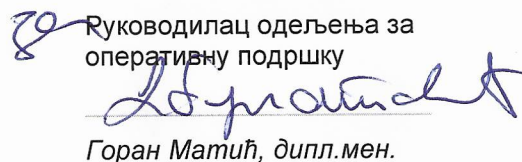 за Руководилац одељења за
оперативну подршку
Горан Матић, дипл.мен.